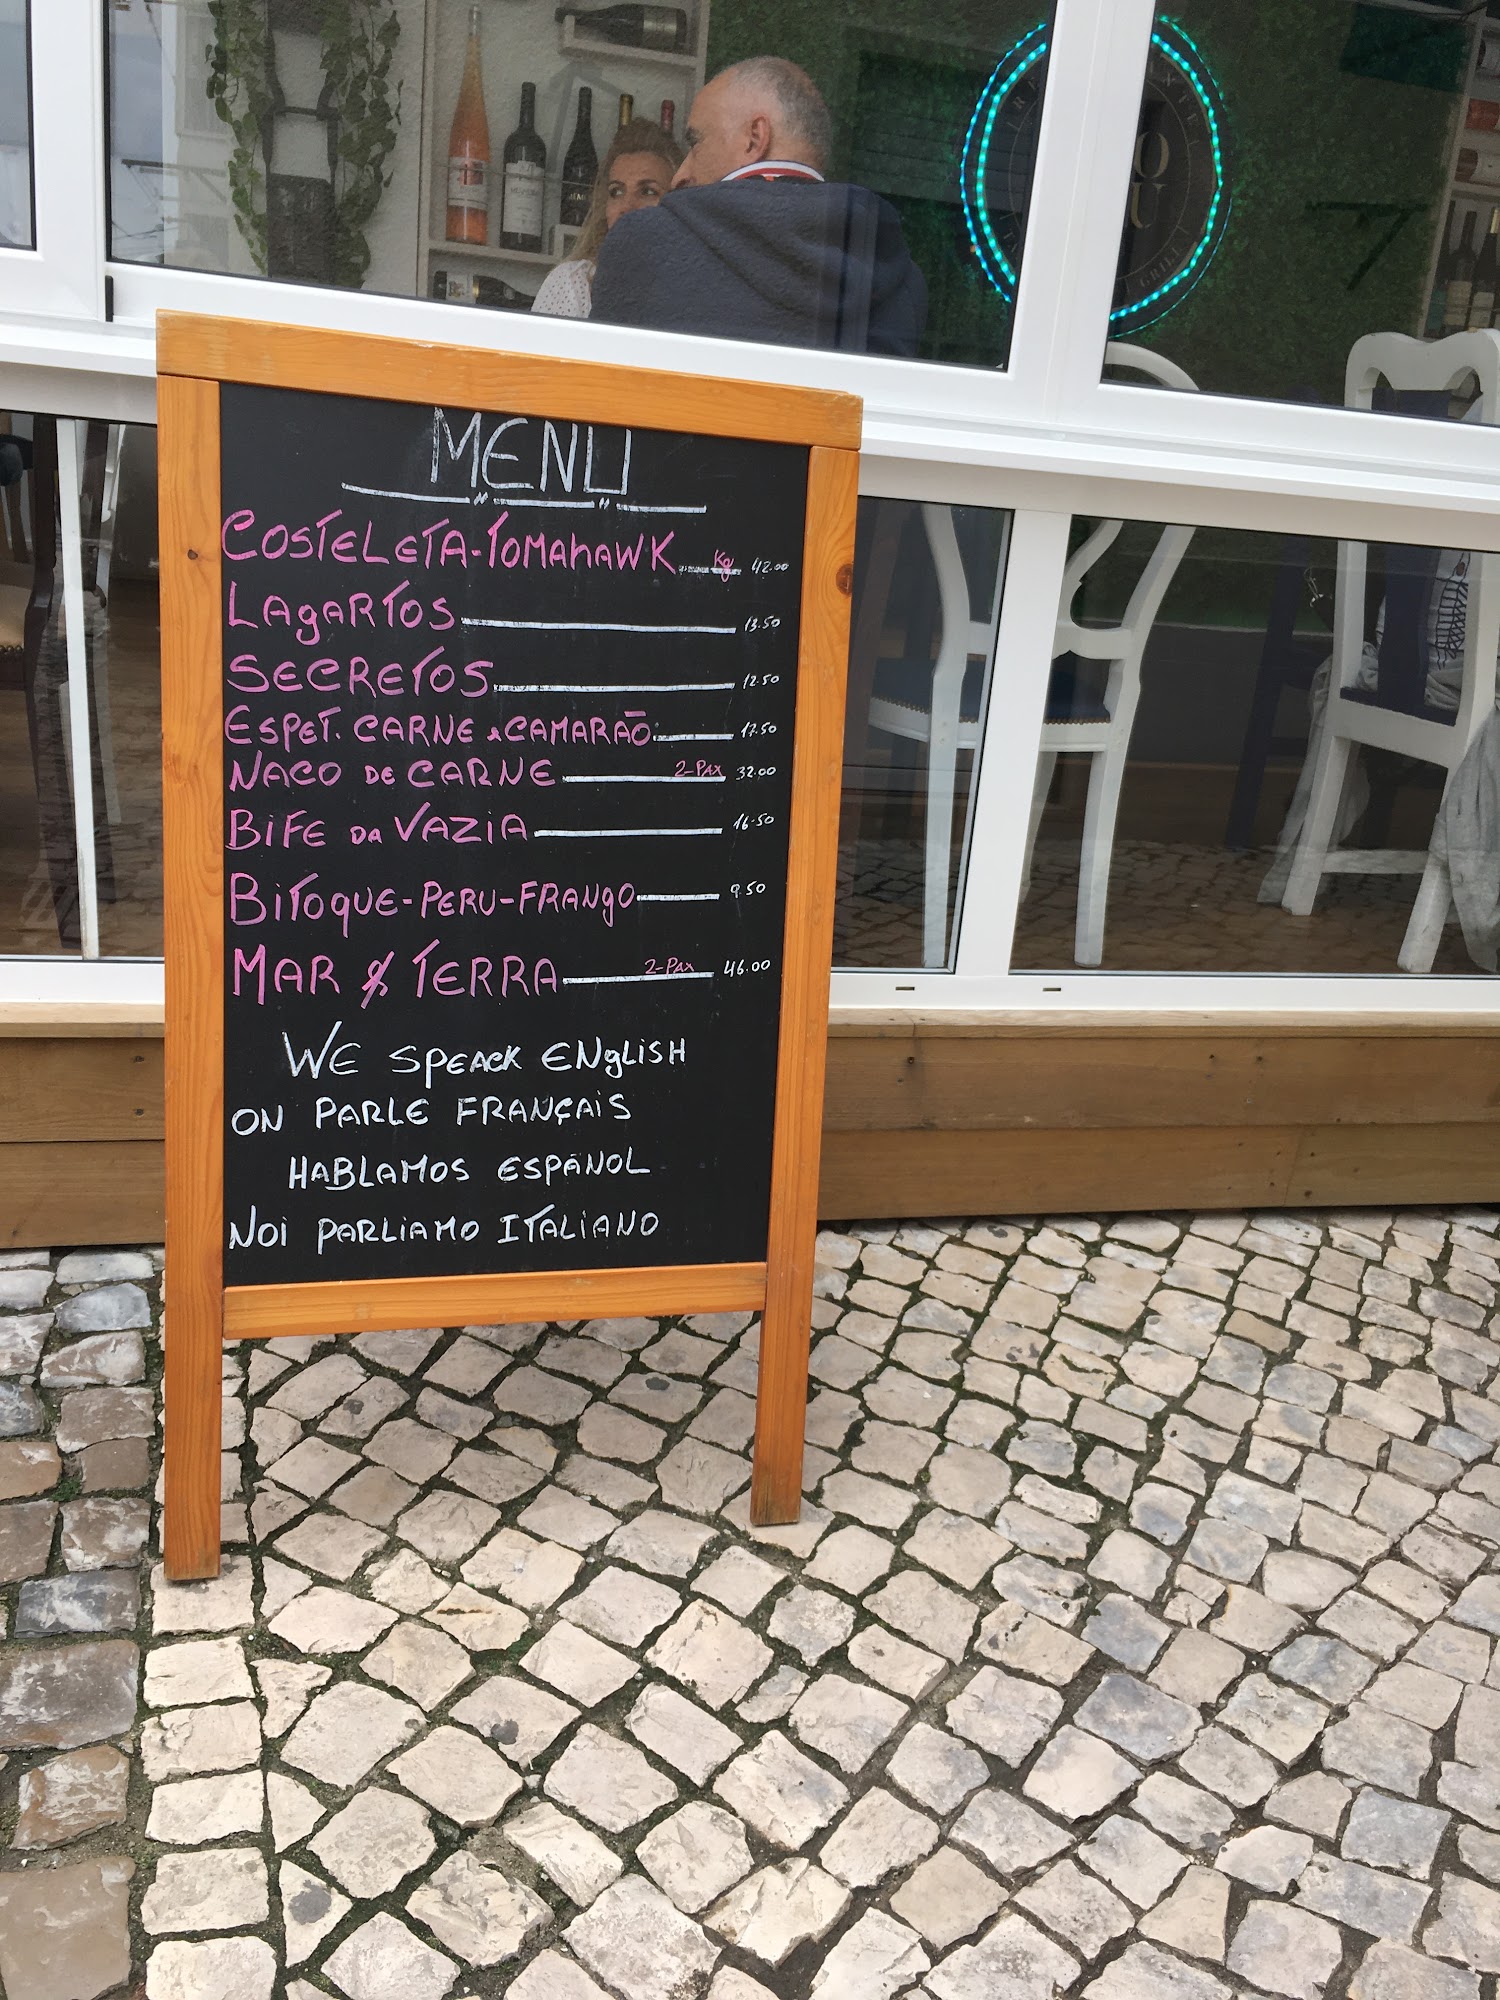 MENU
COSTELETA-TOMAHAWK Kg 42.00
LAGARTOS 13.50
SECRETOS 12.50
ESPET. CARNE & CAMARÃO 17.50
NACO DE CARNE 2-PAX 32.00
BIFE DA VAZIA 16.50
BITOQUE-PERU-FRANGO 9.50
MAR & TERRA 2-PAX 46.00
WE SPEACK ENGLISH
ON PARLE FRANÇAIS
HABLAMOS ESPANOL
NOI PARLIAMO ITALIANO